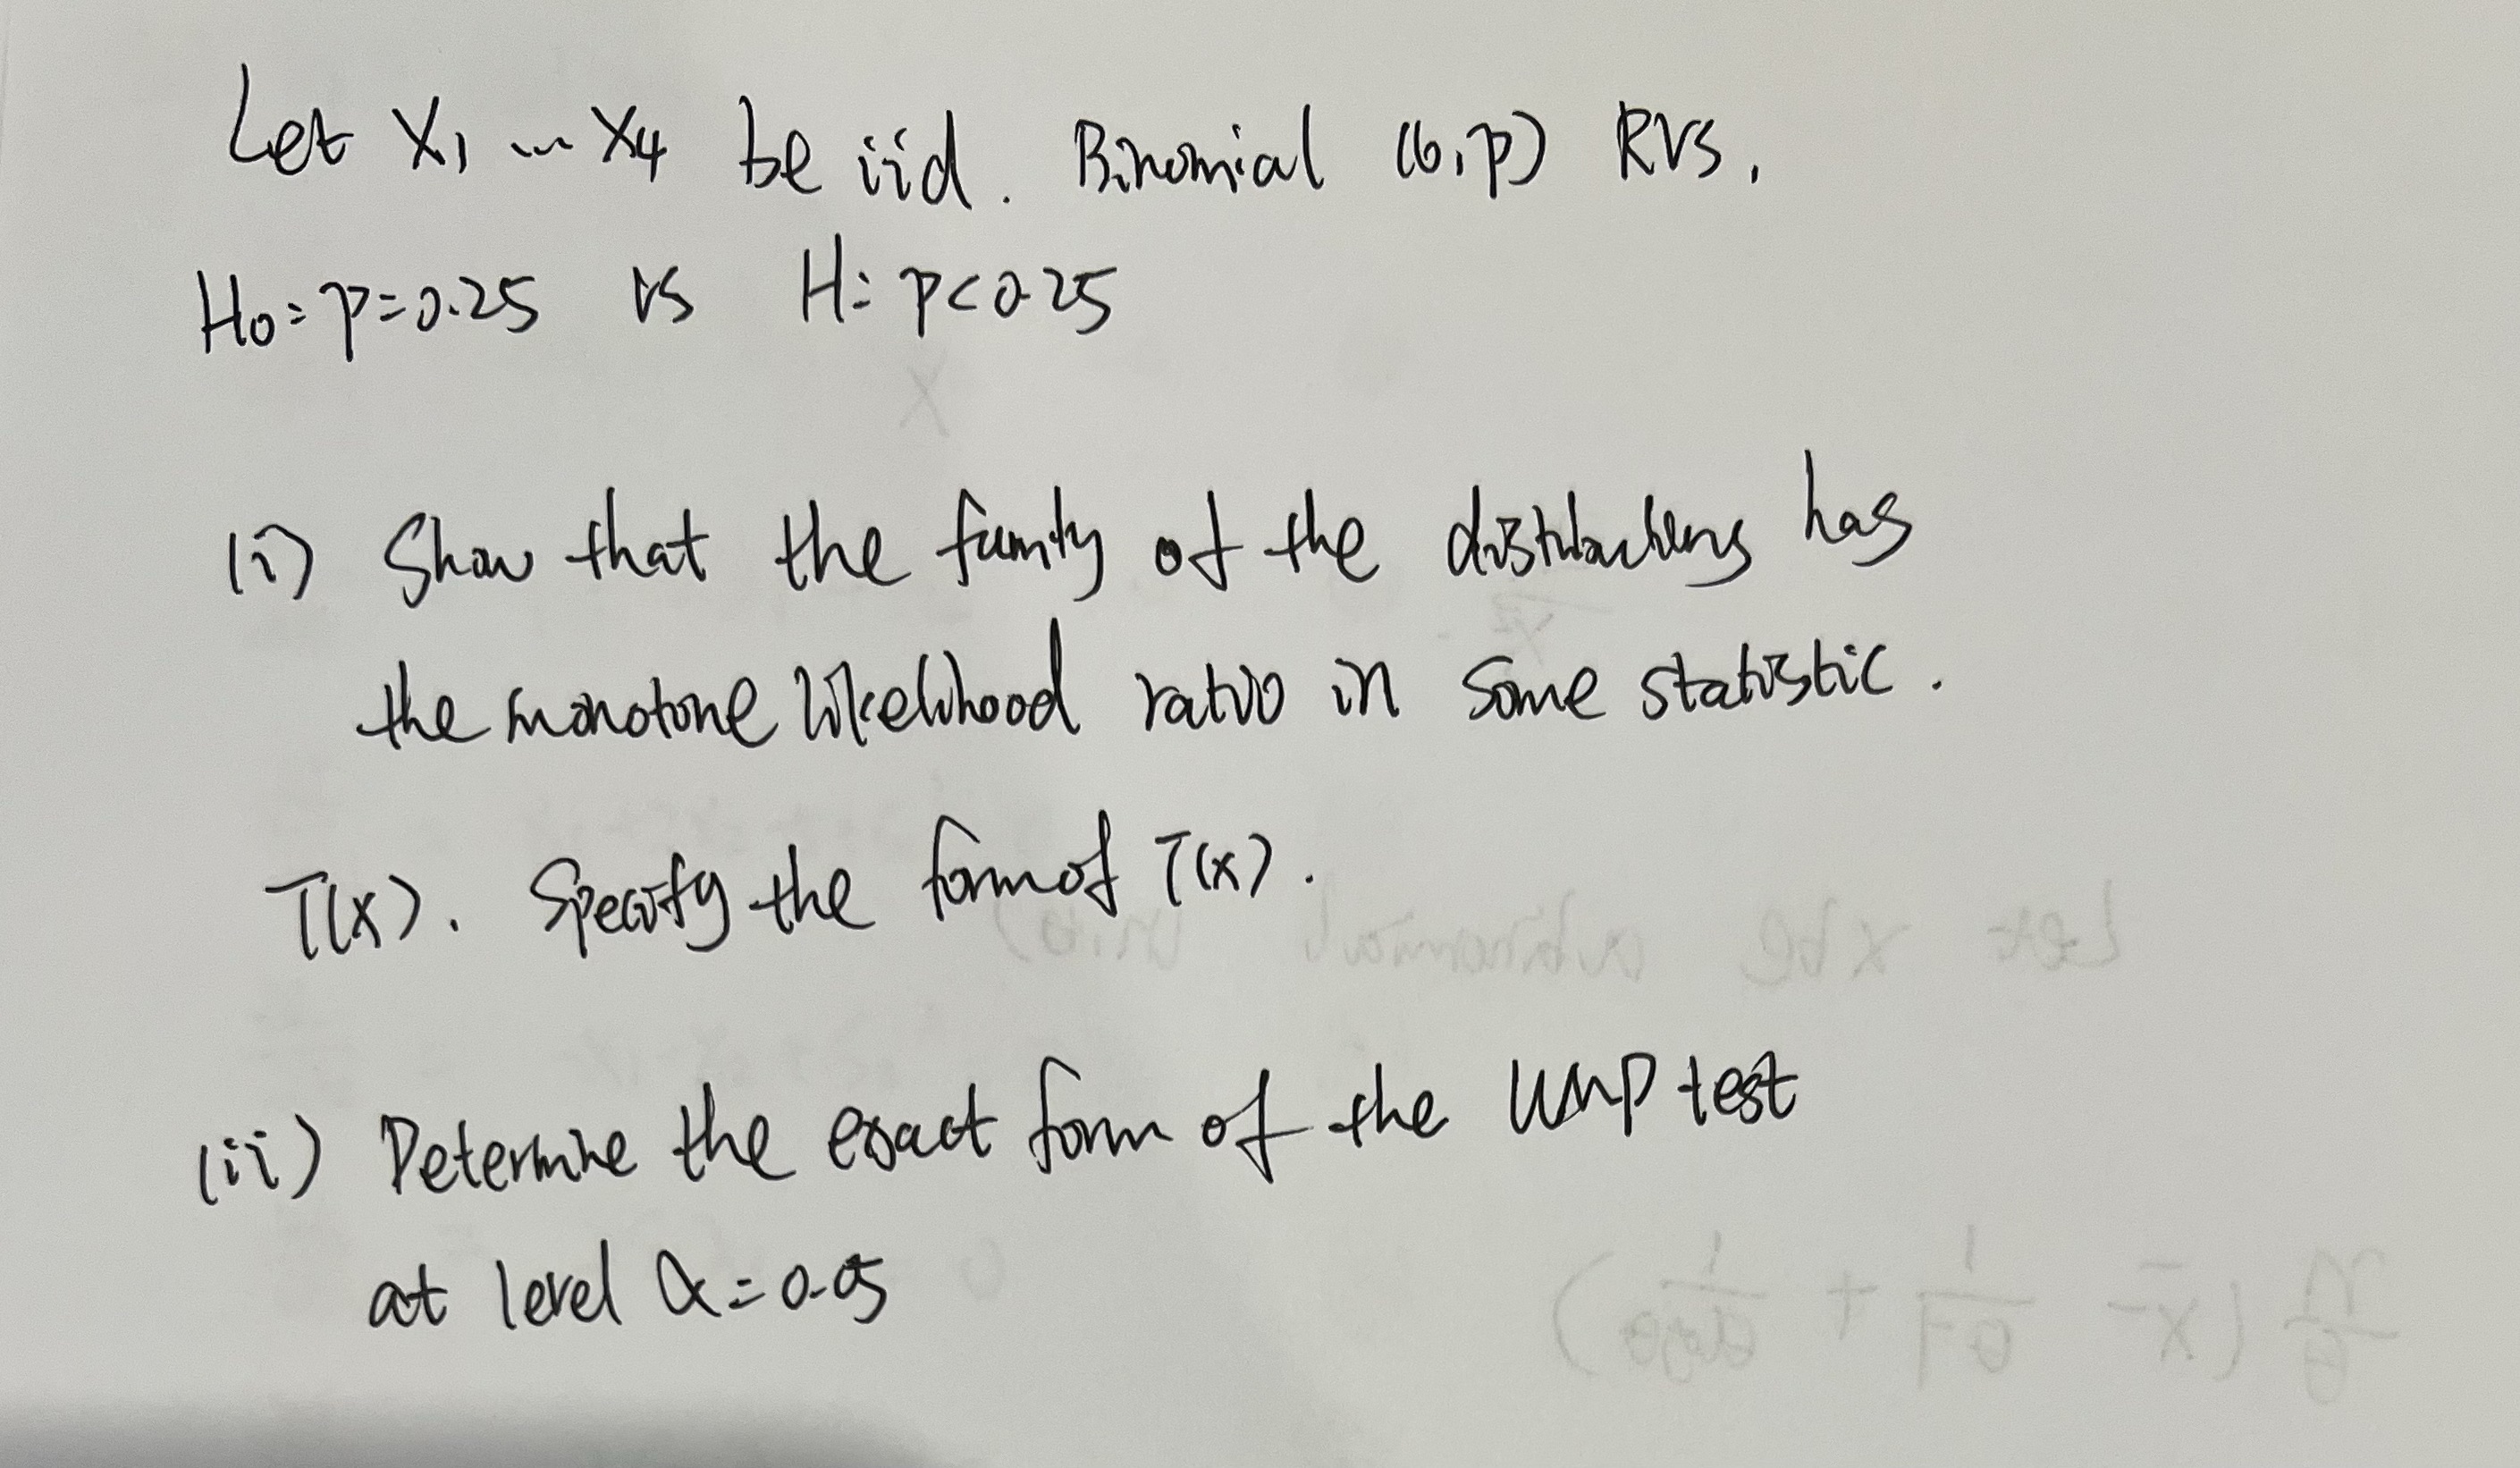 Let X₁ ... X₄ be iid. Binomial (6,p) RVS.
H₀: p=0.25 vs H: p<0.25
(i) Show that the family of the distributions has
the monotone likelihood ratio in some statistic.
T(x). Specify the form of T(x).
(ii) Determine the exact form of the UMP test
at level α=0.05